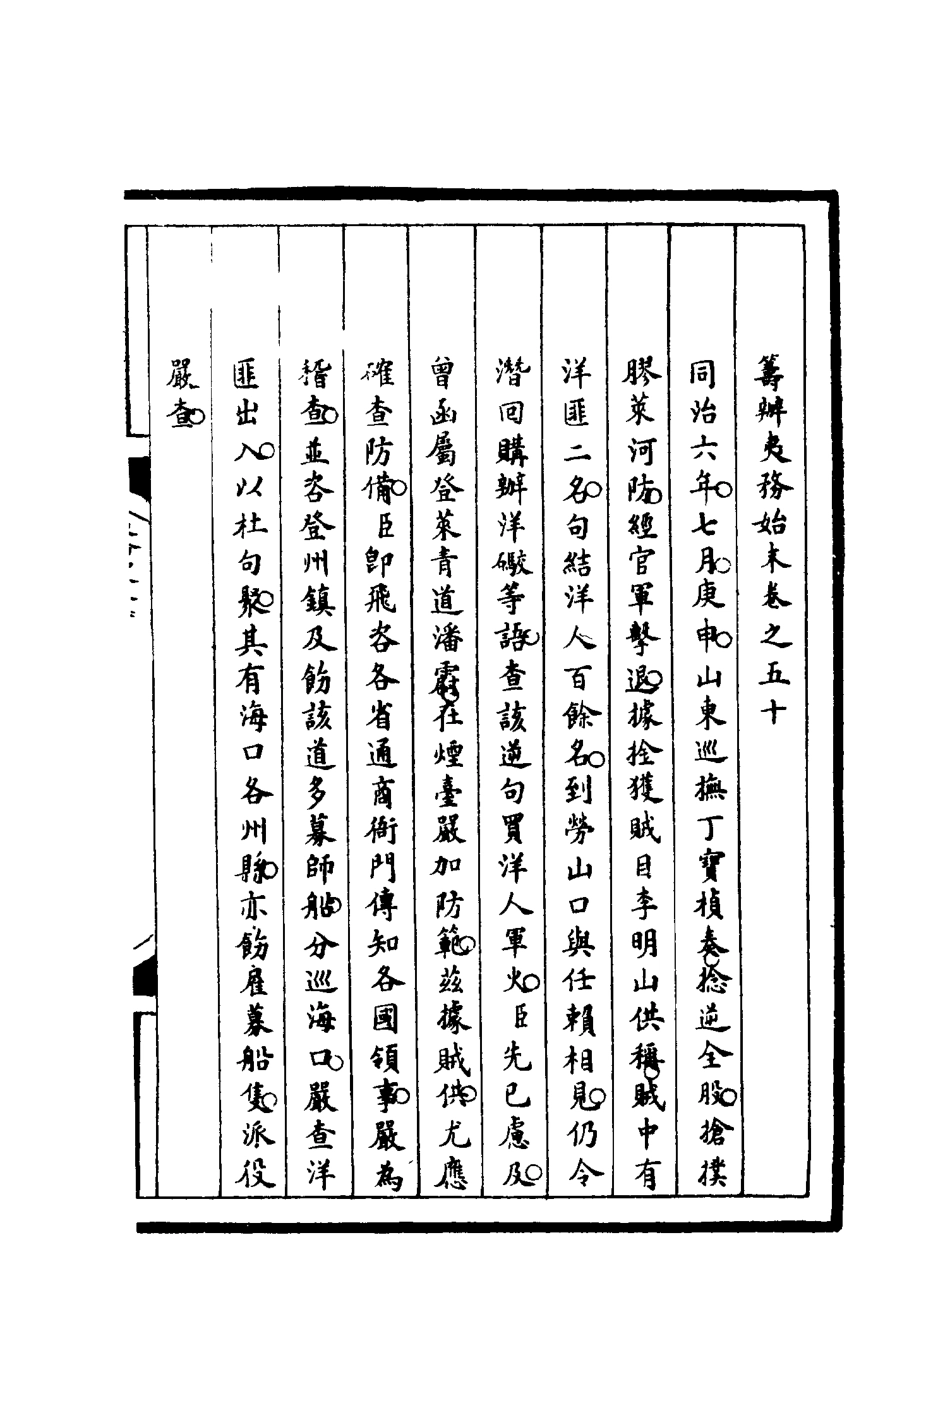 籌辦夷務始末卷之五十
同治六年。七月。庚申。山東巡撫丁寶楨奏。捻逆全股。搶撲
膠萊河防。經官軍擊退。據拴獲賊目李明山供稱。賊中有
洋匪二名。句結洋人百餘名。到勞山口與任賴相見。仍令
潛回購辦洋礮等語。查該逆句買洋人軍火。臣先已慮及。
曾函屬登萊青道潘霨。在煙臺嚴加防範。茲據賊供。尤應
確查防備。臣卽飛咨各省通商衙門傳知各國領事。嚴為
稽查。並咨登州鎮及飭該道多募師船。分巡海口。嚴查洋
匪出入。以杜句聚。其有海口各州縣。亦飭雇募船隻。派役
嚴查。